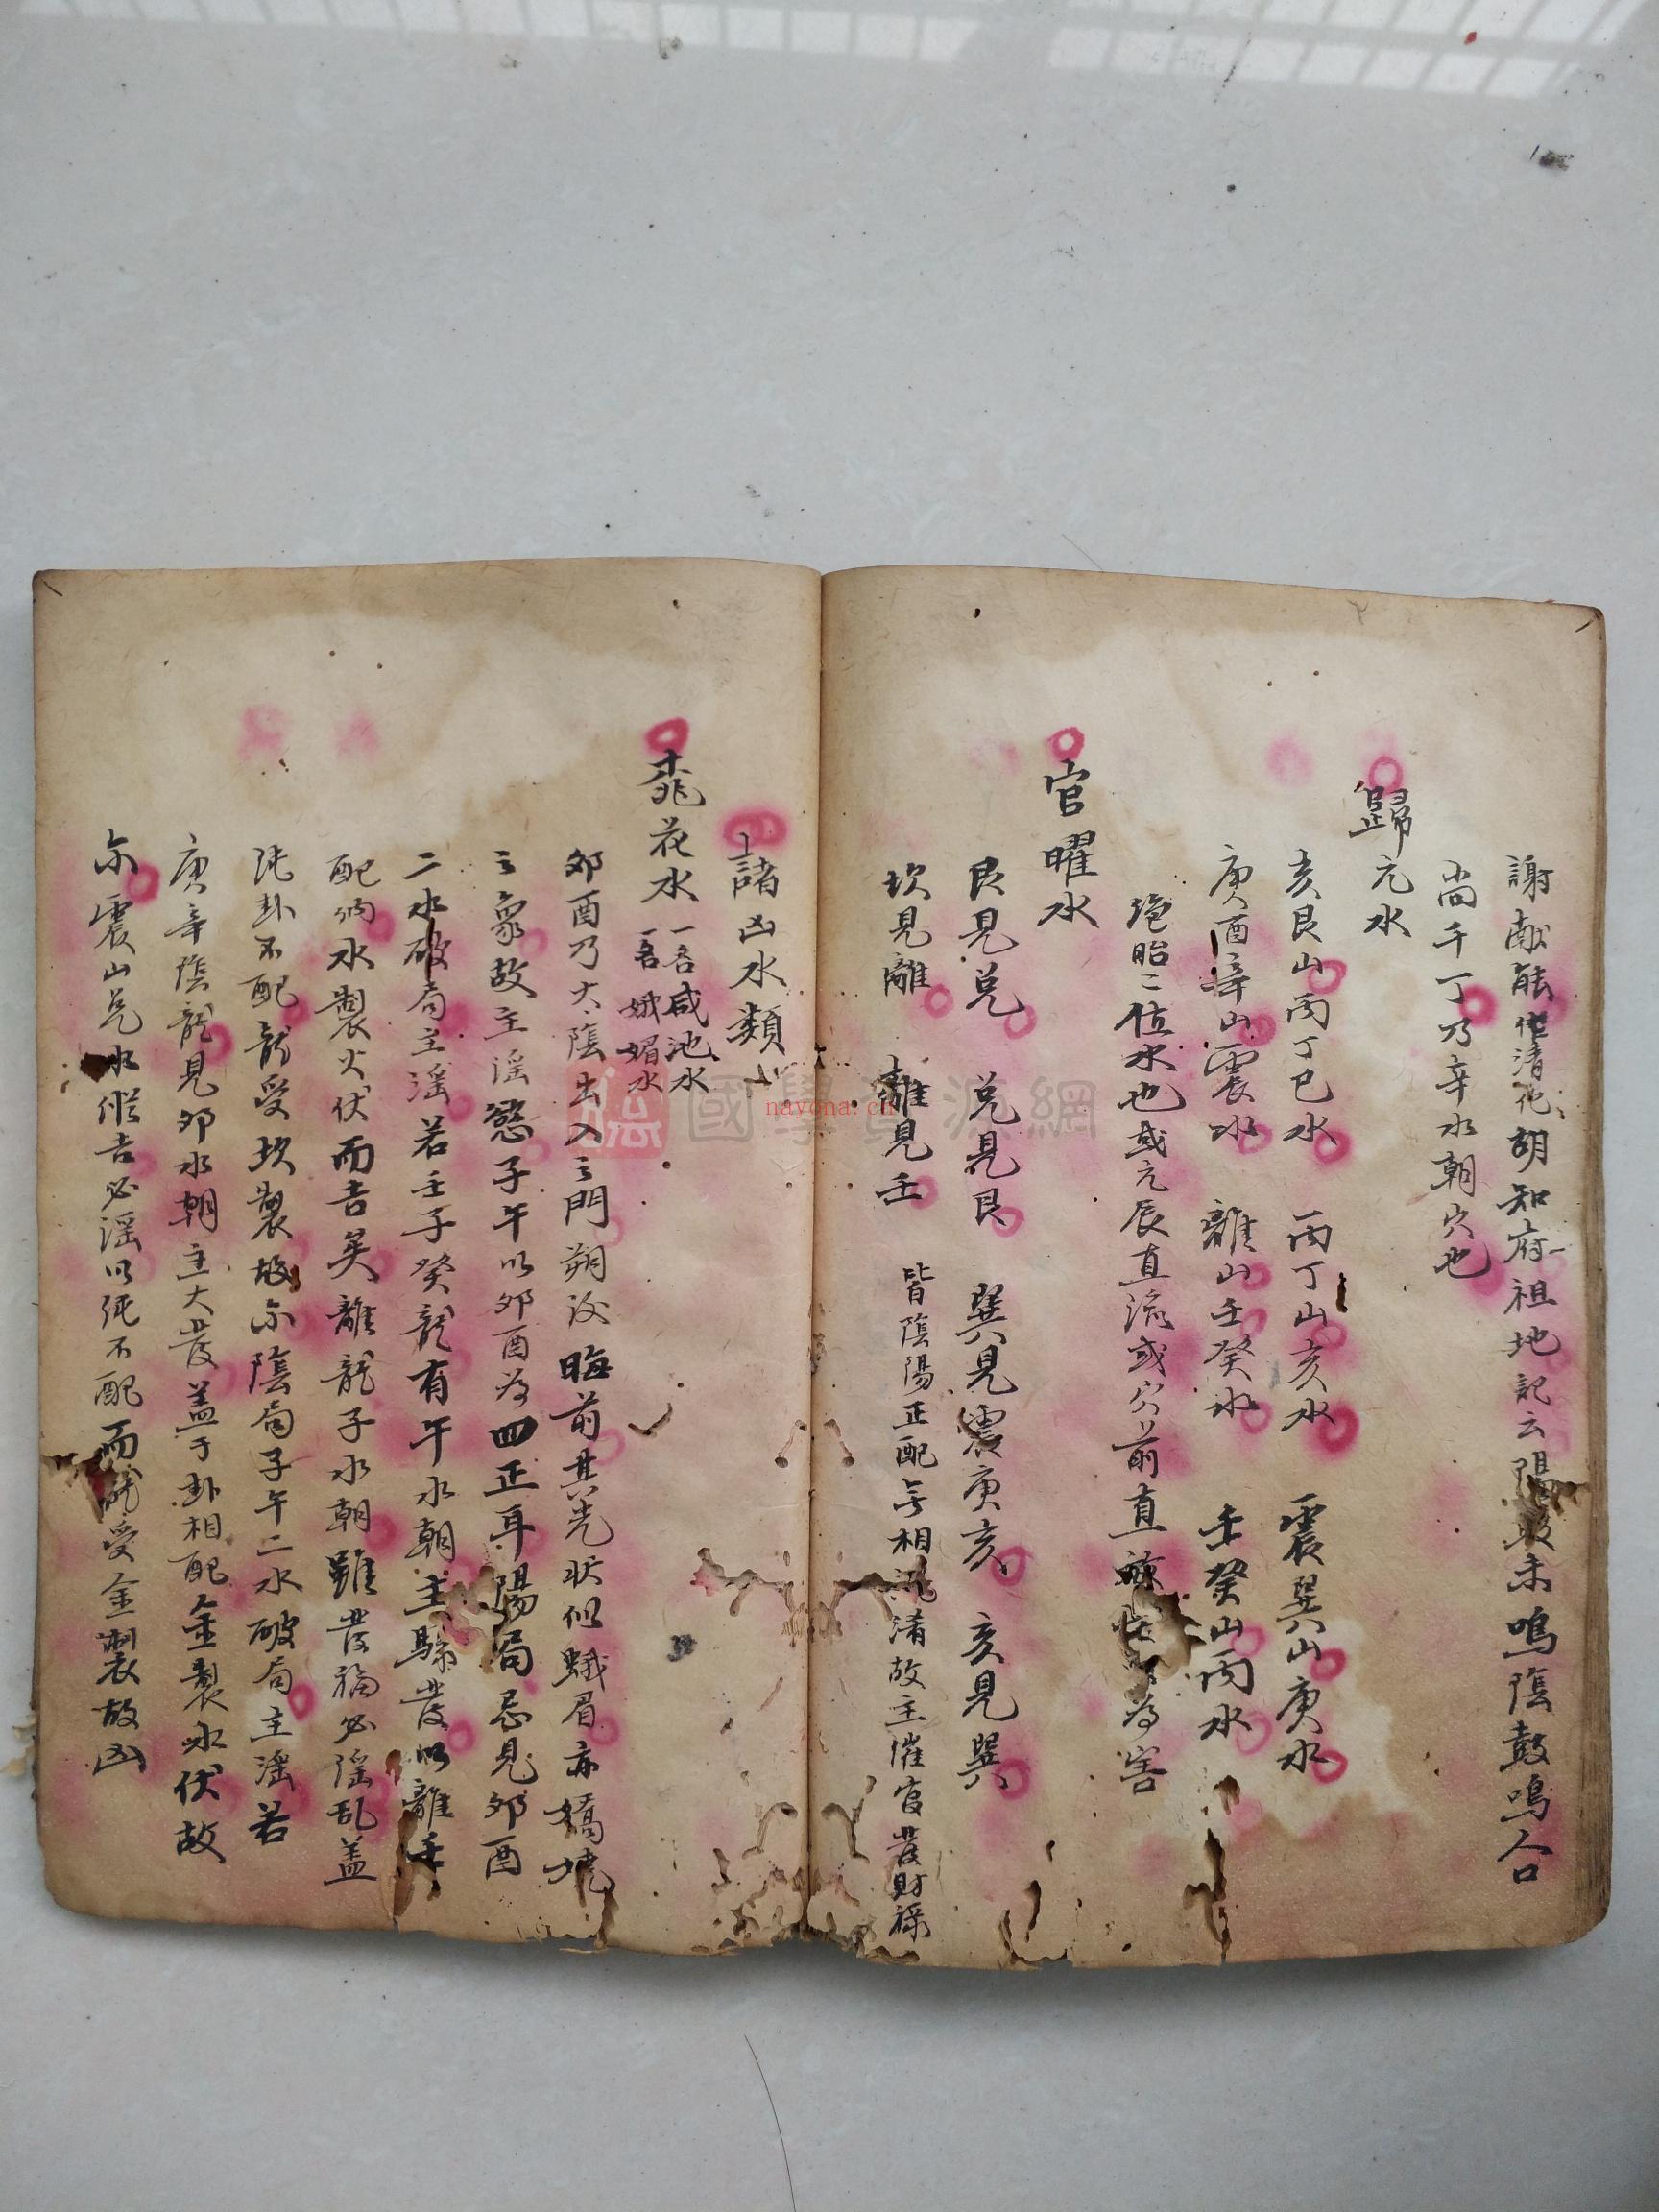 謝献能作清化胡知府祖地記云陽 未鳴陰鼓鳴人口
尚千丁乃辛水朝穴也
歸元水
亥艮山丙丁巳水 丙丁山亥水 震巽山庚水
庚酉辛山震水 離山壬癸水 壬癸山丙水
絶胎二位水也或元辰直流或穴前直 為害
官曜水
艮見兑 兑見艮 巽見震庚亥 亥見巽
坎見離 離見壬 皆陰陽正配無相混淆故主催官發財祿
諸凶水類
桃花水 一名咸池水
一名娥媚水
卯酉乃大陰出入之門朔後晦前其光狀似蛾眉亦嬌
之象故主滛慾子午以卯酉為四正耳陽局忌見卯酉
二水破局主滛若壬子癸龍有午水朝主驟發以離壬
配納水製火伏而吉矣離龍子水朝雖發福必滛乱盖
純卦不配龍受坎製故尓陰局子午二水破局主滛若
庚辛陰龍見卯水朝主大發盖于卦相配金製水伏故
尓震山兑水雖吉必滛以純不配而龍受金製故凶
國學資源網
nayona.cn